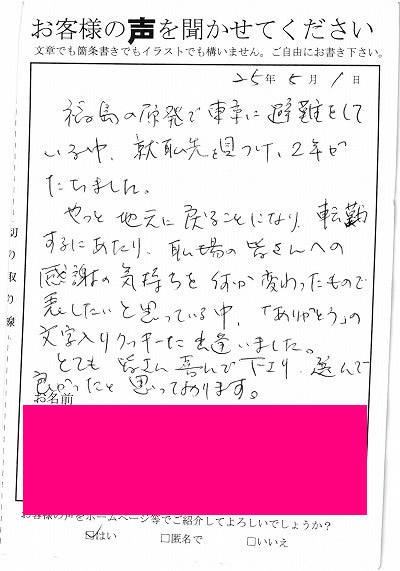 お客様の声を聞かせてください
文章でも箇条書きでもイラストでも構いません。ご自由にお書き下さい。
25年 5月 1日
福島の原発で東京に避難をして
いる中、就職先を見つけ、2年が
たちました。
やっと地元に戻ることになり、転勤
するにあたり、職場の皆さんへの
感謝の気持ちを何か変わったもので
表したいと思っている中、「ありがとう」の
文字入りクッキーに出逢いました。
とても皆さん喜んで下さり、選んで
良かったと思っております。
切り取り線
お名前
お客様の声をホームページ等でご紹介してよろしいでしょうか？
☑はい □匿名で □いいえ